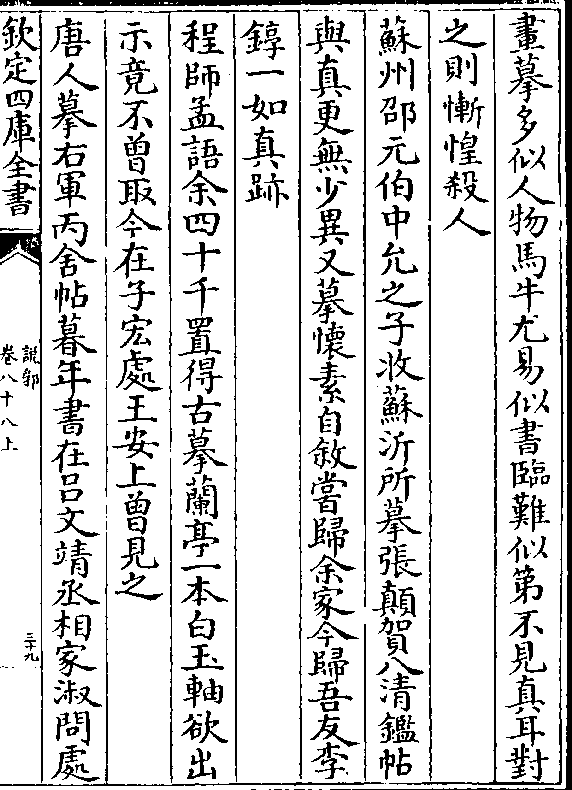 畫摹多似人物馬牛尤易似書臨難似第不見真耳對
之則慚惶殺人
蘇州邵元伯中允之子收蘇沂所摹張顛賀八清鑑帖
與真更無少異又摹懷素自敘嘗歸余家今歸吾友李
錞一如真跡
程師孟語余四十千置得古摹蘭亭一本白玉軸欲出
示竟不曾取今在子宏處王安上曾見之
唐人摹右軍丙舍帖暮年書在呂文靖丞相家淑問處
欽定四庫全書
說郛
卷八十八上
三十九